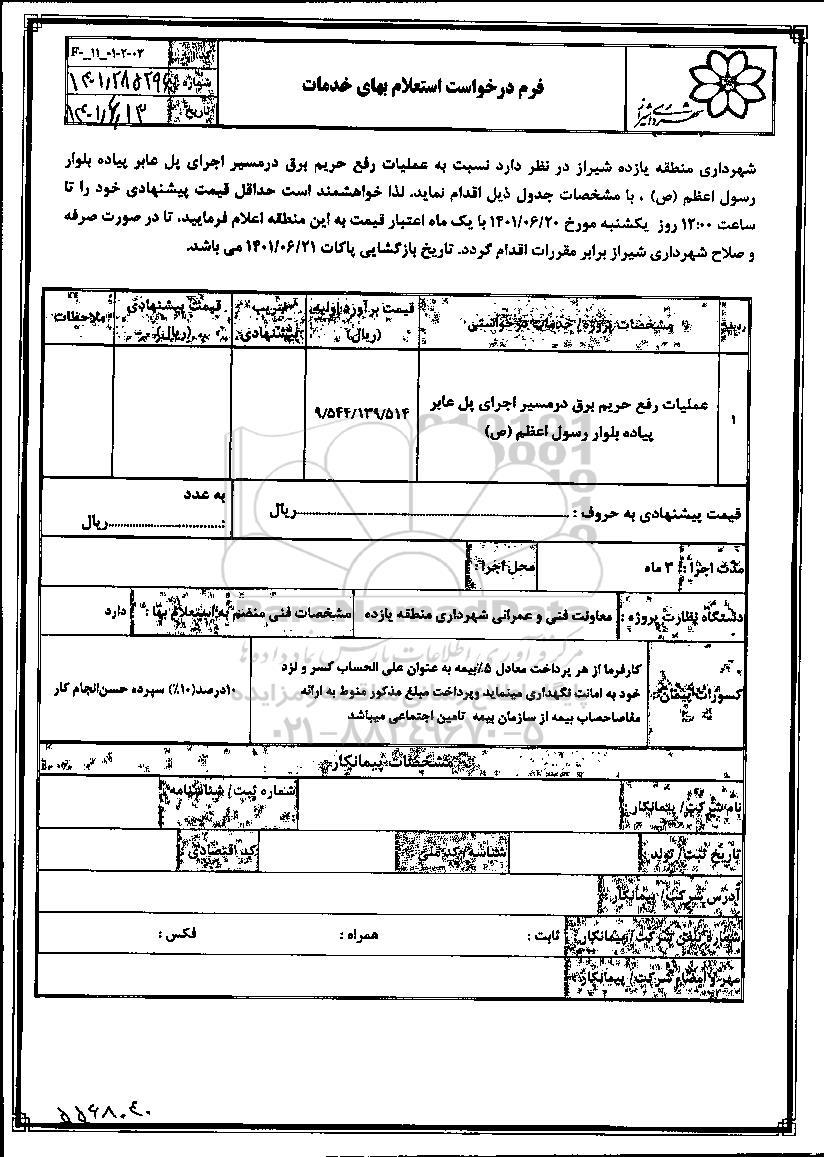 F-_۱۱_۰۱-۲-۰۳
شماره
۱۴۰۱/۲۸۵۲۹۶
تاریخ
۱۴۰۱/۶/۱۳
فرم درخواست استعلام بهای خدمات
شهرداری شیراز
شهرداری منطقه یازده شیراز در نظر دارد نسبت به عملیات رفع حریم برق درمسیر اجرای پل عابر پیاده بلوار
رسول اعظم (ص) ، با مشخصات جدول ذیل اقدام نماید. لذا خواهشمند است حداقل قیمت پیشنهادی خود را تا
ساعت ۱۲:۰۰ روز یکشنبه مورخ ۱۴۰۱/۰۶/۲۰ با یک ماه اعتبار قیمت به این منطقه اعلام فرمایید، تا در صورت صرفه
و صلاح شهرداری شیراز برابر مقررات اقدام گردد. تاریخ بازگشایی پاکات ۱۴۰۱/۰۶/۲۱ می باشد.
ردیف
مشخصات پروژه/ خدمات درخواستی
قیمت برآورد اولیه (ریال)
ضریب پیشنهادی
قیمت پیشنهادی (ریال)
ملاحظات
۱
عملیات رفع حریم برق درمسیر اجرای پل عابر
پیاده بلوار رسول اعظم (ص)
۹/۵۴۴/۱۳۹/۵۱۴
قیمت پیشنهادی به حروف : ..........ریال
به عدد
:..........ریال
مدت اجرا : ۳ ماه
محل اجرا :
دستگاه نظارت پروژه : معاونت فنی و عمرانی شهرداری منطقه یازده
مشخصات فنی منضم به استعلام بها : دارد
کسورات پیمان
کارفرما از هر پرداخت معادل ۵٪بیمه به عنوان علی الحساب کسر و نزد
خود به امانت نگهداری مینماید وپرداخت مبلغ مذکور منوط به ارائه
مفاصاحساب بیمه از سازمان بیمه تامین اجتماعی میباشد
۱۰درصد(۱۰٪) سپرده حسن‌انجام کار
مشخصات پیمانکار
نام شرکت/ پیمانکار
شماره ثبت/ شناسنامه
تاریخ ثبت/ تولد
شناسه/ کد ملی
کد اقتصادی
آدرس شرکت/ پیمانکار
شماره تلفن شرکت/ پیمانکار
ثابت :
همراه :
فکس :
مهر و امضاء شرکت/ پیمانکار
مرکز فرآوری اطلاعات پارس نماد داده ها
۰۲۱-۸۸۳۴۹۶۷۰-۵